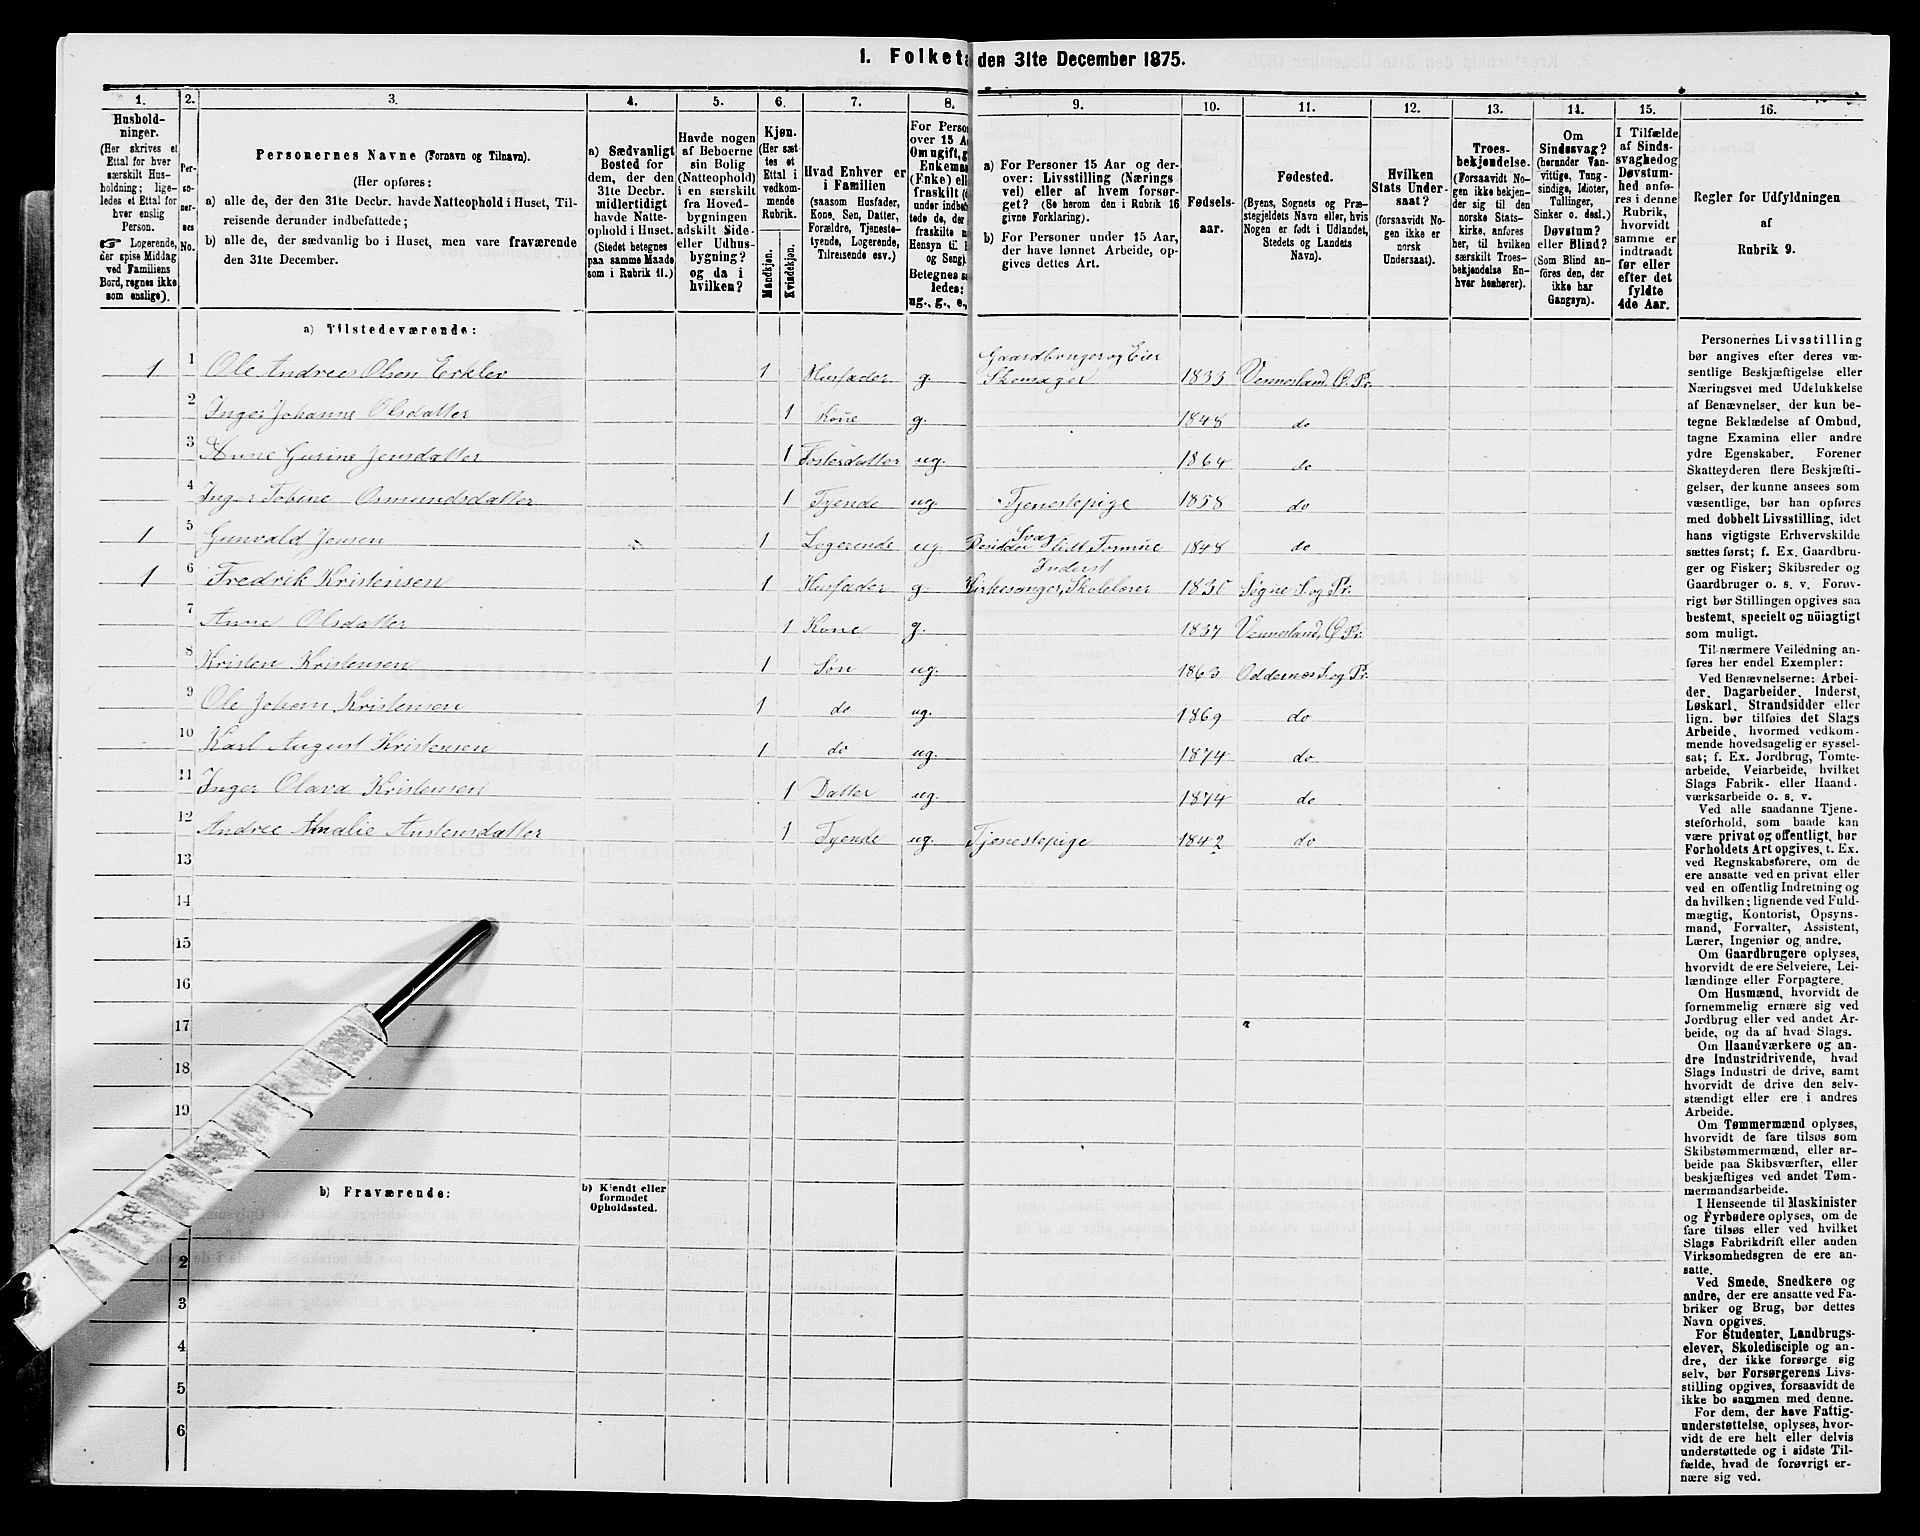 1. Folketæ den 31te December 1875.
1.
Hushold-
ninger.
(Her skrives et
Ettal for hver
særskilt Hus-
holdning; lige-
ledes et Ettal for
hver enslig
Person.
☞ Logerende,
der spise Middag
ved Familiens
Bord, regnes ikke
som enslige).
2.
Per-
so-
ner-
nes
No.
3.
Personernes Navne (Fornavn og Tilnavn).
(Her opføres:
a) alle de, der den 31te Decbr. havde Natteophold i Huset, Til-
reisende derunder indbefattede;
b) alle de, der sædvanlig bo i Huset, men vare fraværende
den 31te December.
4.
a) Sædvanligt
Bosted for
dem, der den
31te Decbr.
midlertidigt
havde Natte-
ophold i Huset.
(Stedet betegnes
paa samme Maade
som i Rubrik 11.)
5.
Havde nogen
af Beboerne
sin Bolig
(Natteophold)
i en særskilt
fra Hoved-
bygningen
adskilt Side-
eller Udhus-
bygning?
og da i
hvilken?
6.
Kjøn.
(Her sæt-
tes et
Ettal i
vedkom-
mende
Rubrik.
Mandkjøn.
Kvindekjøn.
7.
Hvad Enhver er
i Familien
(saasom Husfader,
Kone, Søn, Datter,
Forældre, Tjeneste-
tyende, Logerende,
Tilreisende osv.)
8.
For Perso
over 15 A
Om ugift, g
Enkema
(Enke) ell
fraskilt
under indb
tede de, de
fraskilte
Hensyn til
og Seng).
Betegnes s
ledes:
ug., g., e.,
9.
a) For Personer 15 Aar og der-
over: Livsstilling (Nærings
vei) eller af hvem forsør-
get? (Se herom den i Rubrik 16
givne Forklaring).
b) For Personer under 15 Aar,
der have lønnet Arbeide, op-
gives dettes Art.
10.
Fødsels-
aar.
11.
Fødested.
(Byens, Sognets og Præ-
stegjeldets Navn eller, hvis
Nogen er født i Udlandet,
Stedets og Landets
Navn).
12.
Hvilken
Stats Under-
saat?
(forsaavidt No-
gen ikke er
norsk
Undersaat).
13.
Troes-
bekjendelse.
(Forsaavidt No-
gen ikke bekjen-
der sig til den
norske Stats-
kirke, anføres
her, til hvilken
særskilt Troes-
bekjendelse En-
hver henhører).
14.
Om
Sindssvag?
(herunder Van-
vittige, Tung-
sindige, Idioter,
Tullinger,
Sinker o. desl.)
Døvstum?
eller Blind?
(Som Blind an-
føres den, der
ikke har
Gangsyn).
15.
I Tilfælde
af Sinds-
svaghed og
Døvstum-
hed anfø-
res i denne
Rubrik,
hvorvidt
samme er
indtraadt
før eller
efter det
fyldte
4de Aar.
16.
Regler for Udfyldningen
af
Rubrik 9.
a) Tilstedeværende:
1 1 Ole Andreas Olsen Erklev 1 Husfader g. Gaardbruger og Eier Skomager 1833 Vennesland, Ø. Pr.
2 Inger Johanne Olsdatter 1 Kone g. 1848 do
3 Anne Gurine Jensdatter 1 Fosterdatter ug. 1864 do
4 Inger Tobine Osmundsdatter 1 Tyende ug. Tjenestepige 1858 do
1 5 Gunvald Jensen 1 Logerende ug Svag Besidder lidt Formue 1848 do
1 6 Fredrik Kristensen 1 Husfader g. Inderst Kirkesanger, Skolelærer 1830 Søgne S. og Pr.
7 Anne Olsdatter 1 Kone g. 1837 Vennesland, Ø Pr.
8 Kristen Kristensen 1 Søn ug. 1863 Oddernæs S. og Pr.
9 Ole Johan Kristensen 1 do ug. 1869 do
10 Karl August Kristensen 1 do ug. 1874 do
11 Inger Olava Kristensen 1 Datter ug. 1874 do
12 Andree Amalie Anstensdatter 1 Tyende ug. Tjenestepige 1842 do
13
14
15
16
17
18
19
b) Fraværende:
b) Kjendt eller
formodet
Opholdssted.
2
3
4
5
6
Personernes Livsstilling
bør angives efter deres væ-
sentlige Beskjæftigelse eller
Næringsvei med Udelukkelse
af Benævnelser, der kun be-
tegne Beklædelse af Ombud,
tagne Examina eller andre
ydre Egenskaber. Forener
Skatteyderen flere Beskjæfti-
gelser, der kunne ansees som
væsentlige, bør han opføres
med dobbelt Livsstilling, idet
hans vigtigste Erhvervskilde
sættes først; f. Ex. Gaardbru-
ger og Fisker; Skibsreder og
Gaardbruger o. s. v. Forøv-
rigt bør Stillingen opgives saa
bestemt, specielt og nöiagtigt
som muligt.
Til nærmere Veiledning an-
føres her endel Exempler:
Ved Benævnelserne: Arbei-
der, Dagarbeider, Inderst,
Løskarl, Strandsidder eller
lign. bør tilføies det Slags
Arbeide, hvormed vedkom-
mende hovedsagelig er syssel-
sat; f. Ex. Jordbrug, Tomte-
arbeide, Veiarbeide, hvilket
Slags Fabrik- eller Haand-
værksarbeide o. s. v.
Ved alle saadanne Tjene-
steforhold, som baade kan
være privat og offentligt, bør
Forholdets Art opgives, t. Ex.
ved Regnskabsførere, om de
ere ansatte ved en privat eller
ved en offentlig Indretning og
da hvilken; lignende ved Fuld-
mægtig, Kontorist, Opsyns-
mand, Forvalter, Assistent,
Lærer, Ingeniør og andre.
Om Gaardbrugere oplyses,
hvorvidt de ere Selveiere, Lei-
lændinge eller Forpagtere.
Om Husmænd, hvorvidt de
fornemmelig ernære sig ved
Jordbrug eller ved andet Ar-
beide, og da af hvad Slags.
Om Haandværkere og an-
dre Industridrivende, hvad
Slags Industri de drive, samt
hvorvidt de drive den selv-
stændigt eller ere i andres
Arbeide.
Om Tømmermænd oplyses,
hvorvidt de fare tilsøs som
Skibstømmermænd, eller ar-
beide paa Skibsværfter, eller
beskjæftiges ved andet Tøm-
mermandsarbeide.
I Henseende til Maskinister
og Fyrbødere oplyses, om de
fare tilsøs eller ved hvilket
Slags Fabrikdrift eller anden
Virksomhedsgren de ere an-
satte.
Ved Smede, Snedkere og
andre, der ere ansatte ved Fa-
briker og Brug, bør dettes
Navn opgives.
For Studenter, Landbrugs-
elever, Skoledisciple og an-
dre, der ikke forsørge sig
selv, bør Forsørgerens Livs-
stilling opgives, forsaavidt de
ikke bo sammen med denne.
For dem, der have Fattig-
understøttelse, oplyses, hvor-
vidt de ere helt eller delvis
understøttede og i sidste Til-
fælde, hvad de forøvrigt er-
nære sig ved.